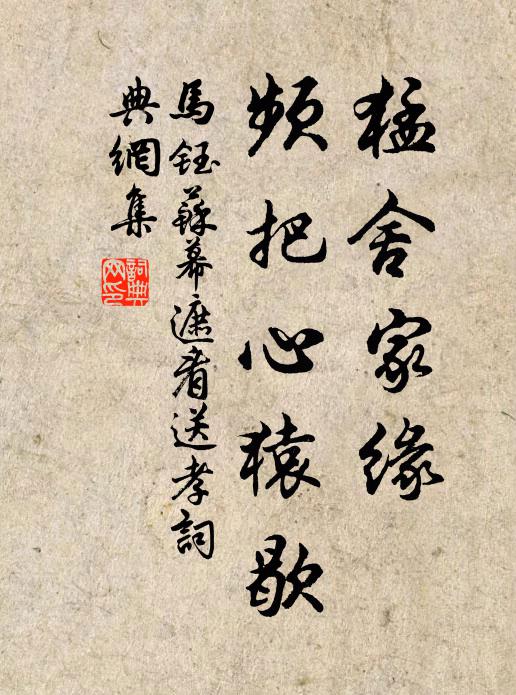 猛舍家緣
頻把心猿歇
馬鈺蘇幕遮看送孝詞
典網集
詞典網印